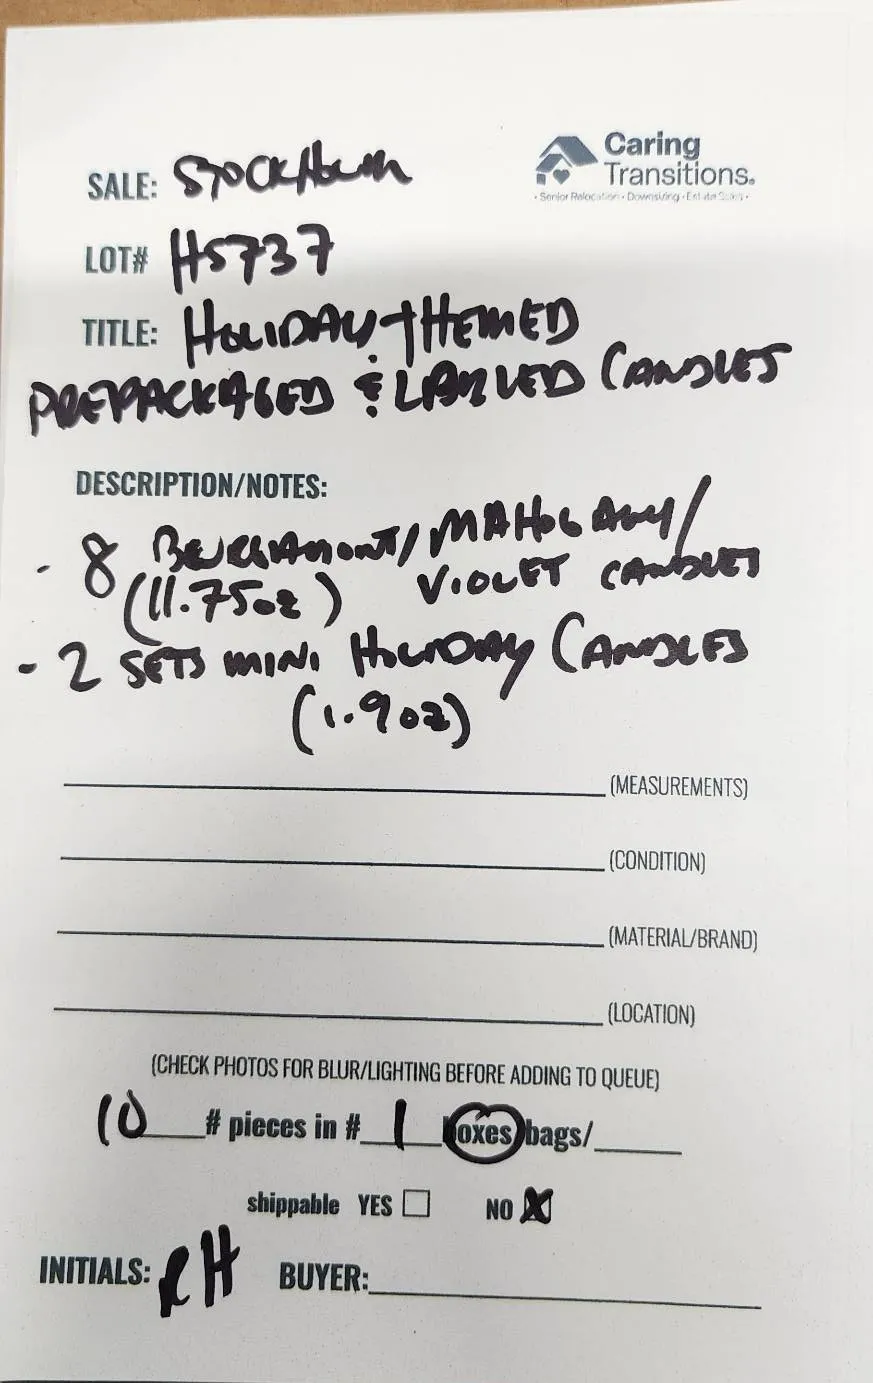 SALE: STOCKHOLM
Caring
Transitions.
• Senior Relocation • Downsizing • Estate Sales •
LOT# H5737
TITLE: HOLIDAY THEMED
PREPACKAGED & LABELED CANDLES
DESCRIPTION/NOTES:
- 8 BERGAMONT/MAHOGANY/
(11.75oz) VIOLET CANDLES
- 2 SETS MINI HOLIDAY CANDLES
(1.9oz)
(MEASUREMENTS)
(CONDITION)
(MATERIAL/BRAND)
(LOCATION)
(CHECK PHOTOS FOR BLUR/LIGHTING BEFORE ADDING TO QUEUE)
10 # pieces in # 1 boxes/bags/
shippable YES ☐ NO ☒
INITIALS: RH BUYER: